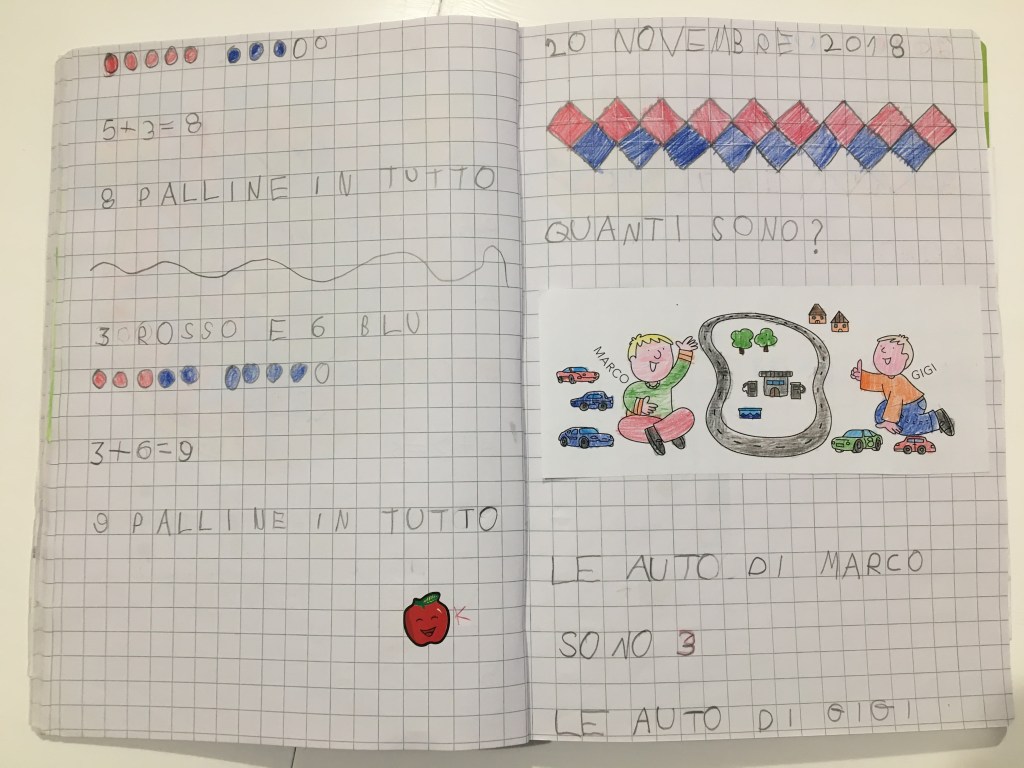 5+3=8
8 PALLINE IN TUTTO
3 ROSSO E 6 BLU
3+6=9
9 PALLINE IN TUTTO
K
20 NOVEMBRE 2018
QUANTI SONO?
MARCO
GIGI
LE AUTO DI MARCO
SONO 3
LE AUTO DI GIGI